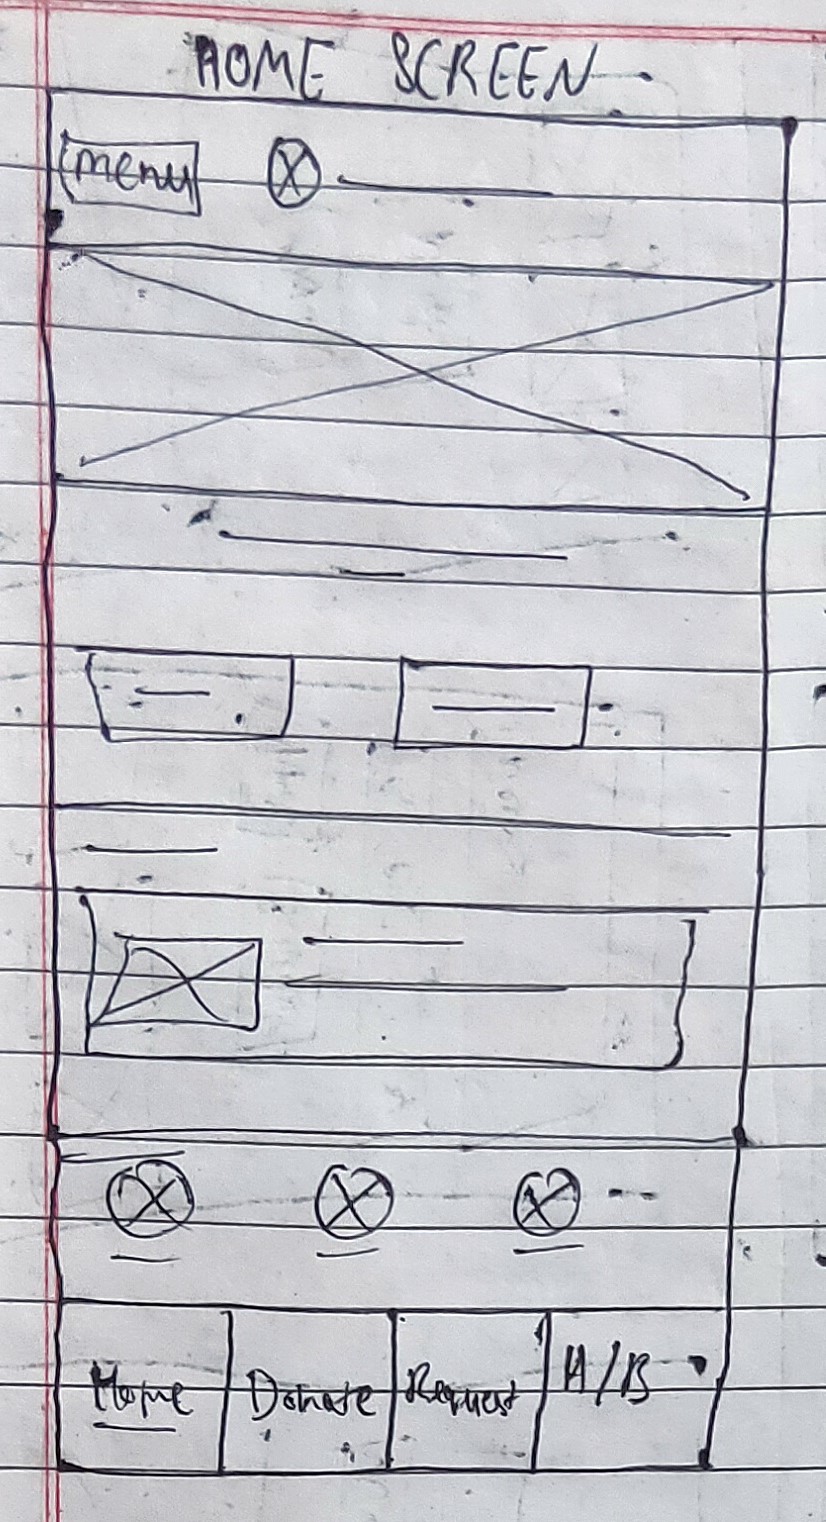 HOME SCREEN
menu
Home Donate Request H/B